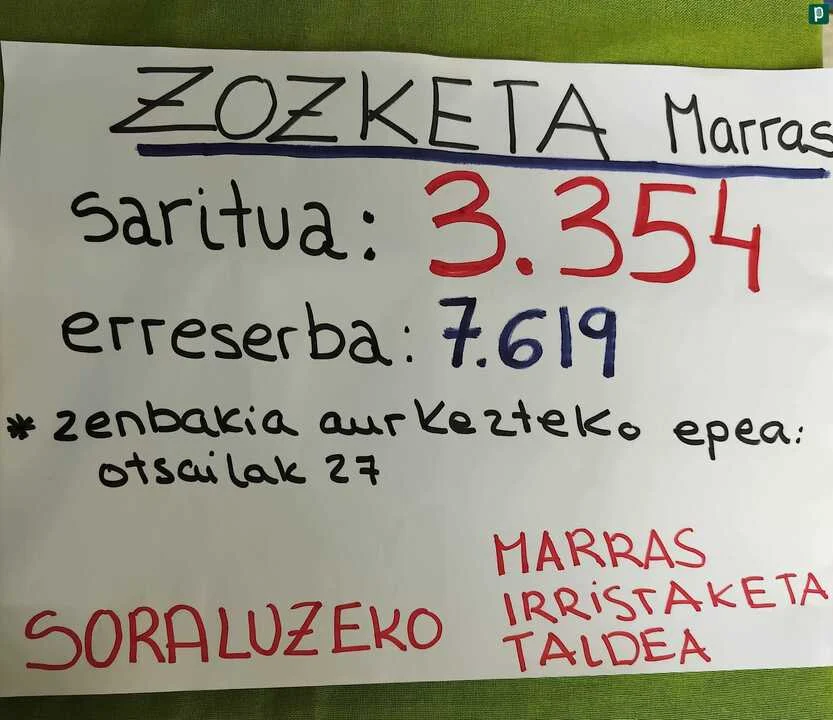 ZOZKETA Marras
saritua: 3.354
erreserba: 7.619
* zenbakia aurkezteko epea:
otsailak 27
SORALUZEKO
MARRAS
IRRISTAKETA
TALDEA